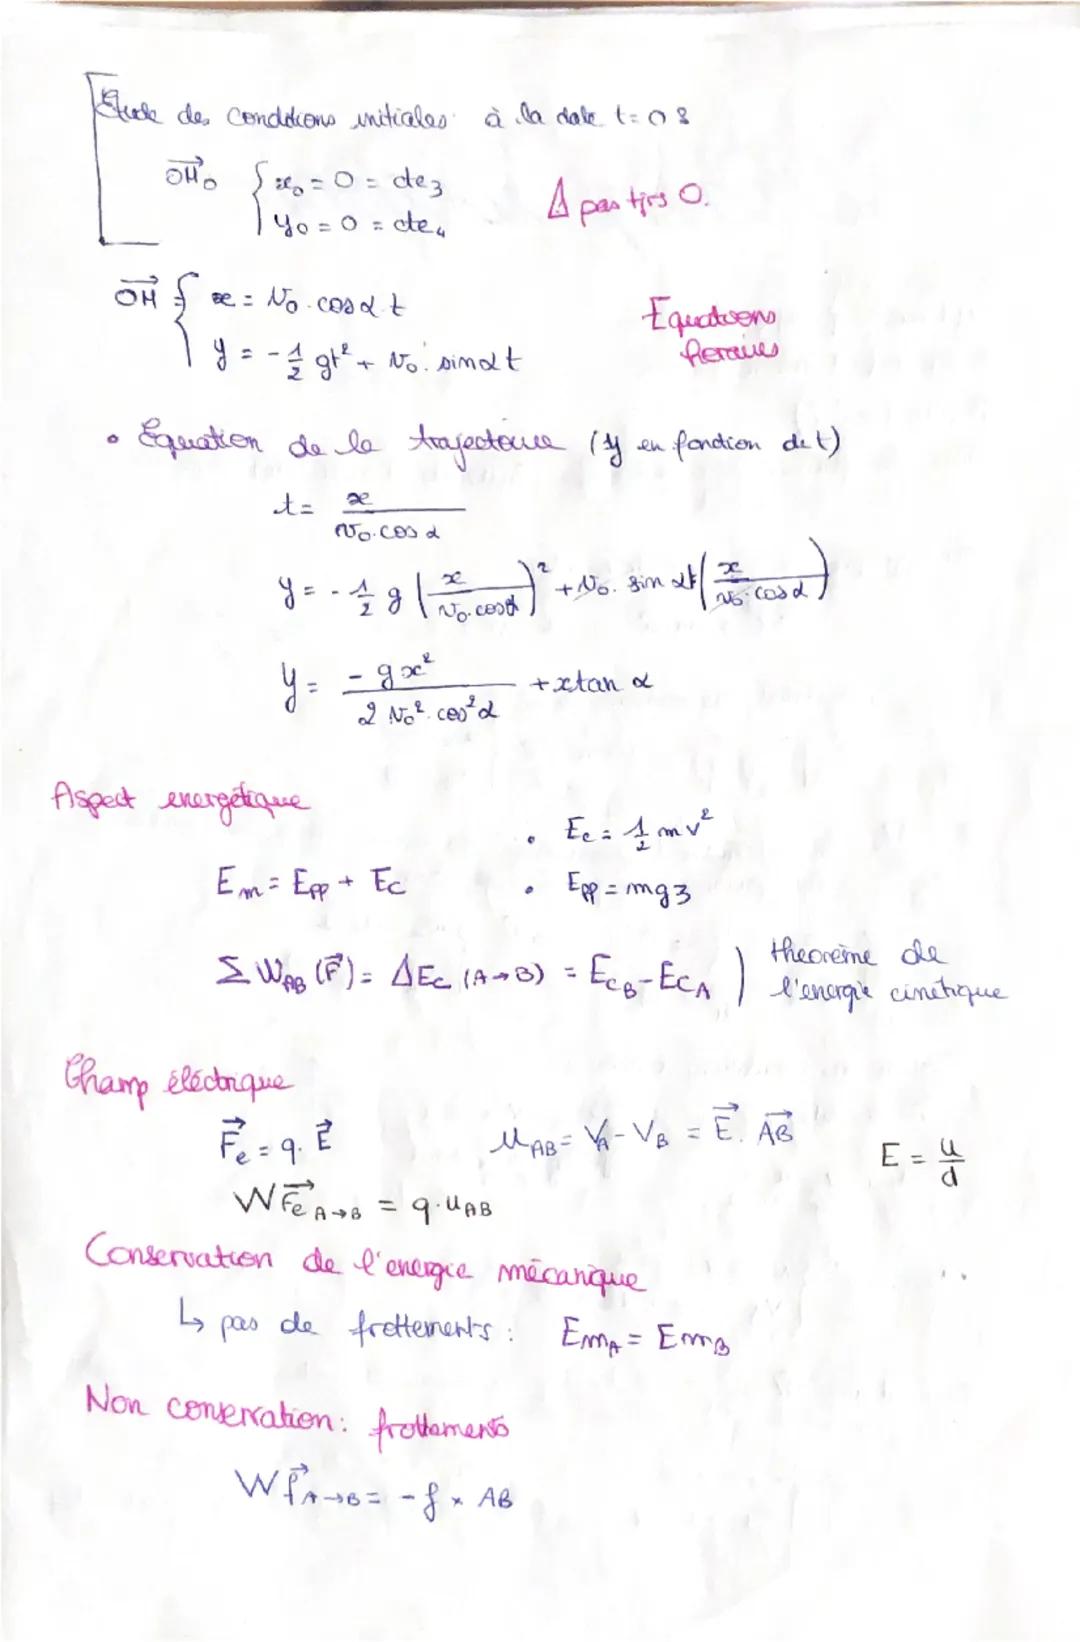 Etude des conditions initiales à la date t=0s
OM₀ { x₀ = 0 = cte₃
y₀ = 0 = cte₄
⚠ pas tjrs 0.
OM { x = V₀.cosα.t
y = -1/2 gt² + V₀.sinαt
Equations
horaires
• Equation de la trajectoire (y en fonction de t)
t = x/(V₀.cos α)
y = -1/2 g (x/(V₀.cosα))² + V₀. sin α (x/(V₀.cosα))
y = -gx²/(2 V₀².cos²α) + xtan α
Aspect energétique
• Ec = 1/2 mv²
Em = Epp + Ec
• Epp = mgz
Σ W_AB (F) = ΔEc (A→B) = Ec_B - Ec_A ) théorème de
l'energie cinétique
Champ électrique
Fe = q. E
u_AB = V_A - V_B = E. AB
E = u/d
WFe A→B = q.u_AB
Conservation de l'energie mécanique
↳ pas de frottements : Em_A = Em_B
Non conservation: frottements
Wf A→B = -f × AB